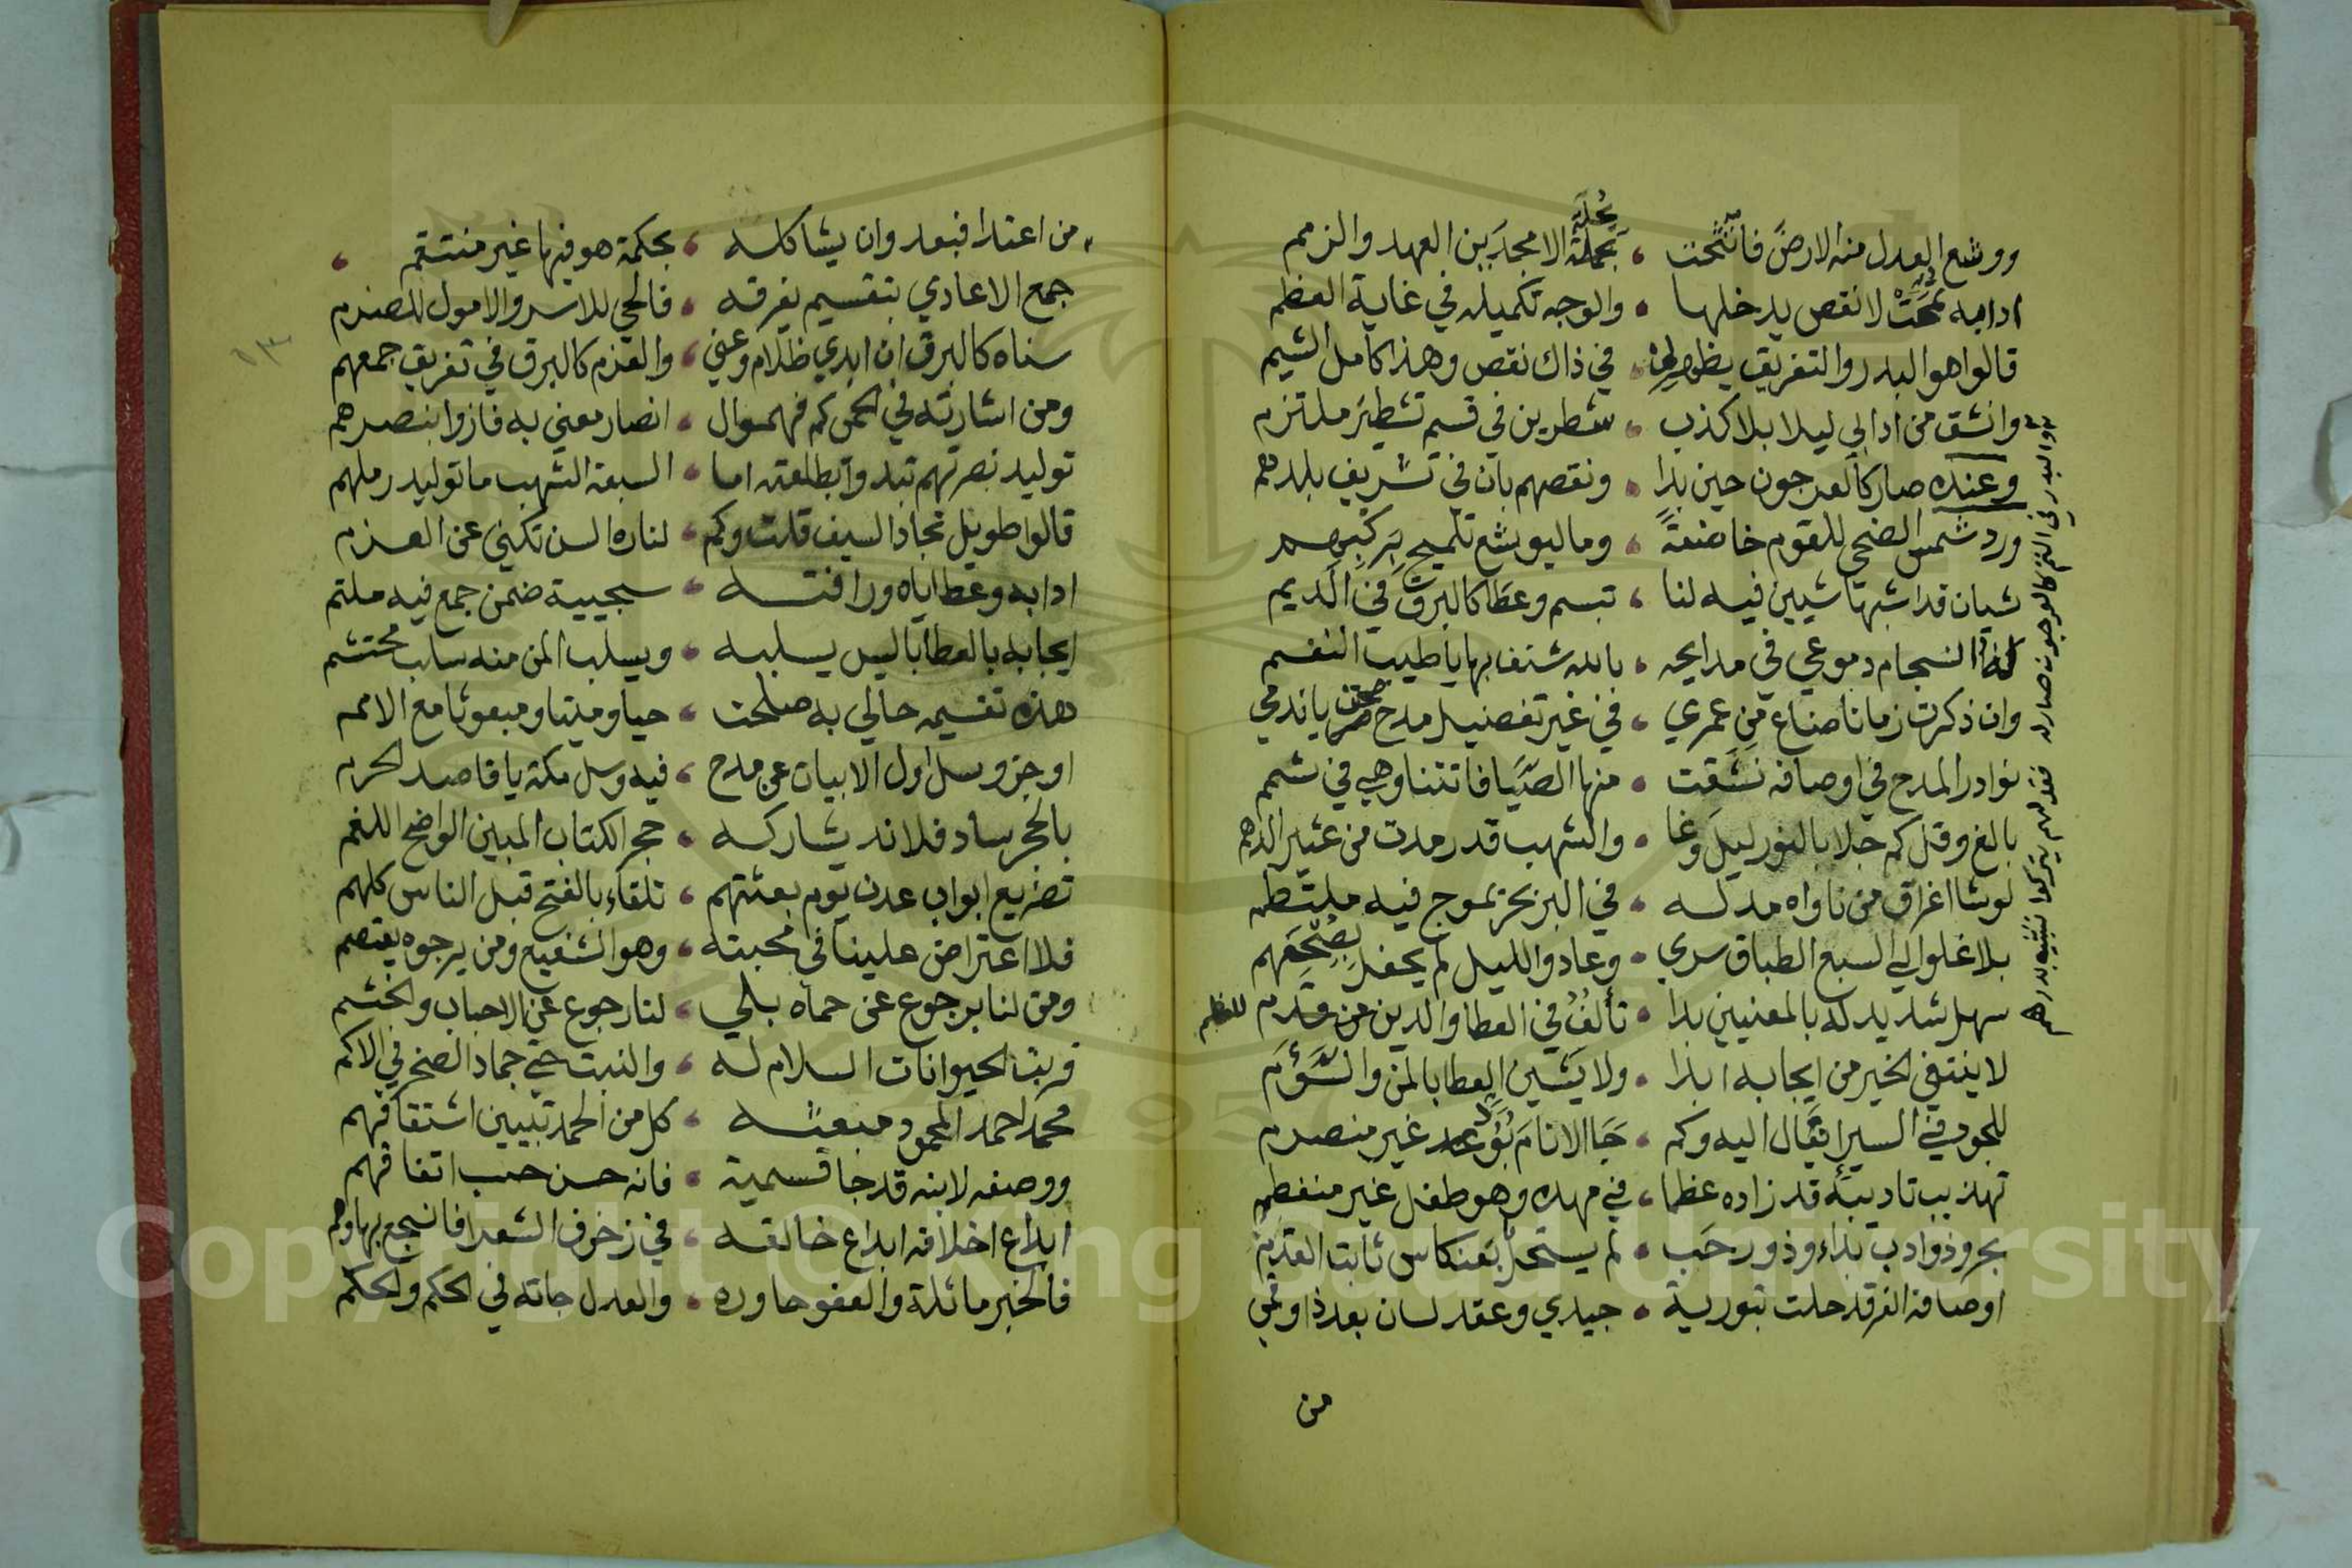 ووشع العدل منه الارض فاتشحت ، بحلة الامجدين العهد والزمم
ادابه تمت لا نقص يدخلها ، والوجه تكميله في غاية العظم
قالوا هو البدر والتفريق يظهر لي ، في ذاك نقص وهذا كامل الشيم
وانشق من ادابي ليلا بلا كذب ، شطرين في قسم تشطير ملتزم
وعنده صار كالعرجون حين بدا ، ونقصهم بان في تشريف بلدهم
ورد شمس الضحى للقوم خاضعة ، وما ليوشع تلميح بركبهم
شيان قد اشبها شيين فيه لنا ، تبسم وعطا كالبرق في الديم
انسجام دموعي في مدايحه ، بالله شنف بها يا طيب النغم
وان ذكرت زمانا ضاع من عمري ، في غير تفضيل مدح يا ندمي
نوادر المدح في اوصافه نشقت ، منها الصبا فاتتنا وهي في شمم
بالغ وقل كم جلا بالنور ليل وغا ، والشهب قد رمدت من عثير الدهم
لو شا اغراق من ناواه مد له ، في البر بحر بموج فيه ملتطم
بلا غلو الي السبع الطباق سري ، وعاد والليل لم يحفل بصبحهم
سهل شديد له بالمعنيين بدا ، تألف في العطا والدين من قدم للعظم
لا ينتفي الخير من ايجابه ابدا ، ولا يشين العطا بالمن والسؤم
للجود في السير ايغال اليه وكم ، حبا الانام بود غير منصرم
تهذيب تاديبه قد زاده عظما ، في مهده وهو طفل غير منفطم
بحر وذو ادب بداء وذو رحب ، لم يستحل بعنكاس ثابت القدم
اوصافه الغر قد حلت بتورية ، جيدي وعقد لسان بعد ذا وفمي
من
من اعتدا فبعد وان يشاكله ، بحكمة هو فيها غير منتقم
جمع الاعادي بتقسيم يفرقه ، فالحي للاسر والاموال للصنرم
سناه كالبرق ان ابدي ظلام وغي ، والعزم كالبرق في تفريق جمعهم
ومن اشارته في الحرب كم فهموا ، انصار معني به فازوا بنصرهم
توليد نصرتهم تبدوا بطلعته اما ، السبعة الشهب ما توليد رملهم
قالوا طويل نجاد السيف قلت وكم ، لناره السن تكني عن الكرم
ادابه وعطاياه ورافته ، سجيية ضمن جمع فيه ملتم
ايجابه بالعطايا ليس يسلبه ، ويسلب المن منه سلب محتشم
هذه تقسيمه حالي به صلحت ، حيا وميتا ومبعوثا مع الامم
اوجز وسل اول الابيات عن مدح ، فيه وسل مكة يا قاصد الحرم
بالحجر ساد فلا ند يشاركه ، حجر الكتاب المبين الواضح اللقم
تصريع ابواب عدن يوم بعثهم ، تلقاء بالفتح قبل الناس كلهم
فلا اعتراض علينا في محبته ، وهو الشفيع ومن يرجوه يعتصم
ومن لنا برجوع عن حماه بلي ، لنا رجوع عن الاحباب والحشم
فربت الحيوانات السلام له ، والنبت حتى جماد الصخر في الاكم
محمد احمد المحمود مبعثه ، كل من الحمد تبيين اشتقاقهم
ووصفه لابنه قد جا تسمية ، فانه حسن حسب اتفاقهم
ابداع اخلاقه ابداع خالقه ، في زخرف الشعرا فاسجع بها وهم
فالخير ماثلة والعفو جاوره ، والعدل جاته في الحكم والحكم